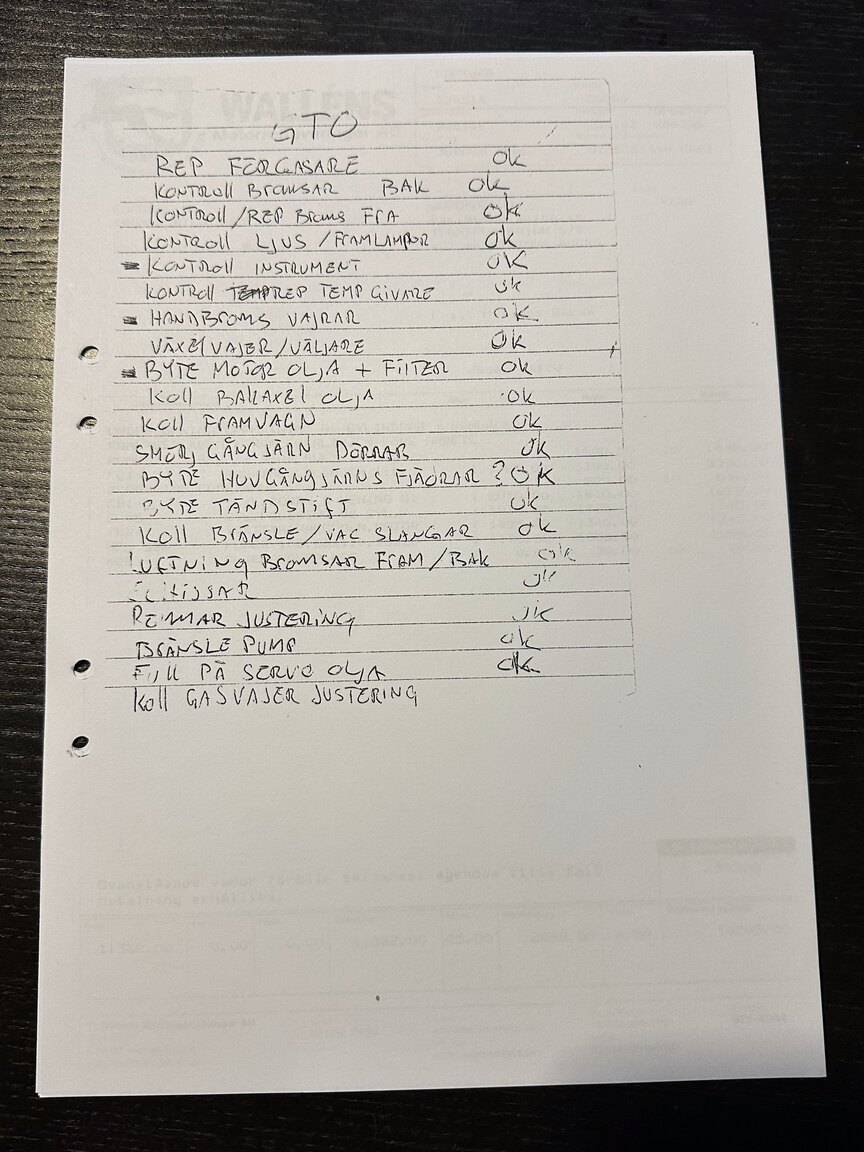 WALLENS
GTO
REP FÖRGASARE OK
KONTROLL BROMSAR BAK OK
KONTROLL/REP BROMS FRA OK
KONTROLL LJUS/FRAMLAMPOR OK
KONTROLL INSTRUMENT OK
KONTROLL REP TEMP GIVARE OK
HANDBROMS VAJRAR OK
VÄXEL VAJER/VÄLJARE OK
BYTE MOTOR OLJA + FILTER OK
KOLL BAKAXEL OLJA OK
KOLL FRAMVAGN OK
SMÖRJ GÅNGJÄRN DÖRRAR OK
BYTE HUVGÅNGJÄRNS FJÄDRAR ? OK
BYTE TÄNDSTIFT OK
KOLL BRÄNSLE/VAC SLANGAR OK
LUFTNING BROMSAR FRAM/BAK OK
OK
REMMAR JUSTERING OK
BRÄNSLE PUMP OK
FYLL PÅ SERVO OLJA OK
KOLL GASVAJER JUSTERING